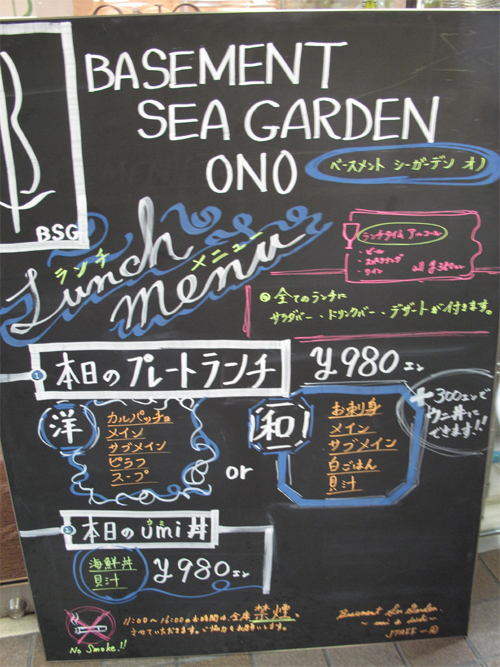 BASEMENT
SEA GARDEN
ONO
ベースメント シーガーデン オノ
BSG
ランチ
Lunch
メニュー
menu
ランチタイム アルコール
・ビール
・スパークリング
・ワイン
all ¥380エン
◎全てのランチに
サラダバー・ドリンクバー・デザートが付きます。
1 本日のプレートランチ ¥980エン
洋
カルパッチョ
メイン
サブメイン
ピラフ
スープ
or
和
お刺身
メイン
サブメイン
白ごはん
貝汁
+300エンで
ウニ丼に
できます!!
2 本日のUmi丼
ウミ
海鮮丼
貝汁
¥980エン
No Smoke!!
11:00~16:00のお時間は、全席禁煙
させていただきます。ご協力をお願いします。
Basement Sea Garden
STAFF一同